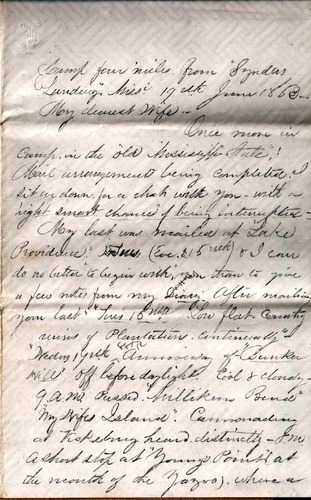 Camp four miles from "Synders
Landing", Miss. 19th June 1863.
My dearest Wife -
Once more in
camp, in the "old Mississippi State",!
Mail arrangements being completed, I
sit me down, for a chat with you - with a
"right smart chance" of being interrupted -
My last was mailed at Lake
Providence, (Eve. 15) & I can
do no better to begin with, than to give
a few notes from my Diary. After mailing
your last "Tues 16th" Low flat country
ruins of Plantation continually"
"Wednes 17th Anniversary of Bunker
Hill" off before daylight. Cool & cloudy
9 A.M. Passed "Millikens Bend"
"My Wifes Island". Cannonading
at Vicksburg heard distinctly -
a short stop at "Youngs Point" (at
the mouth of the Yazoo), where a